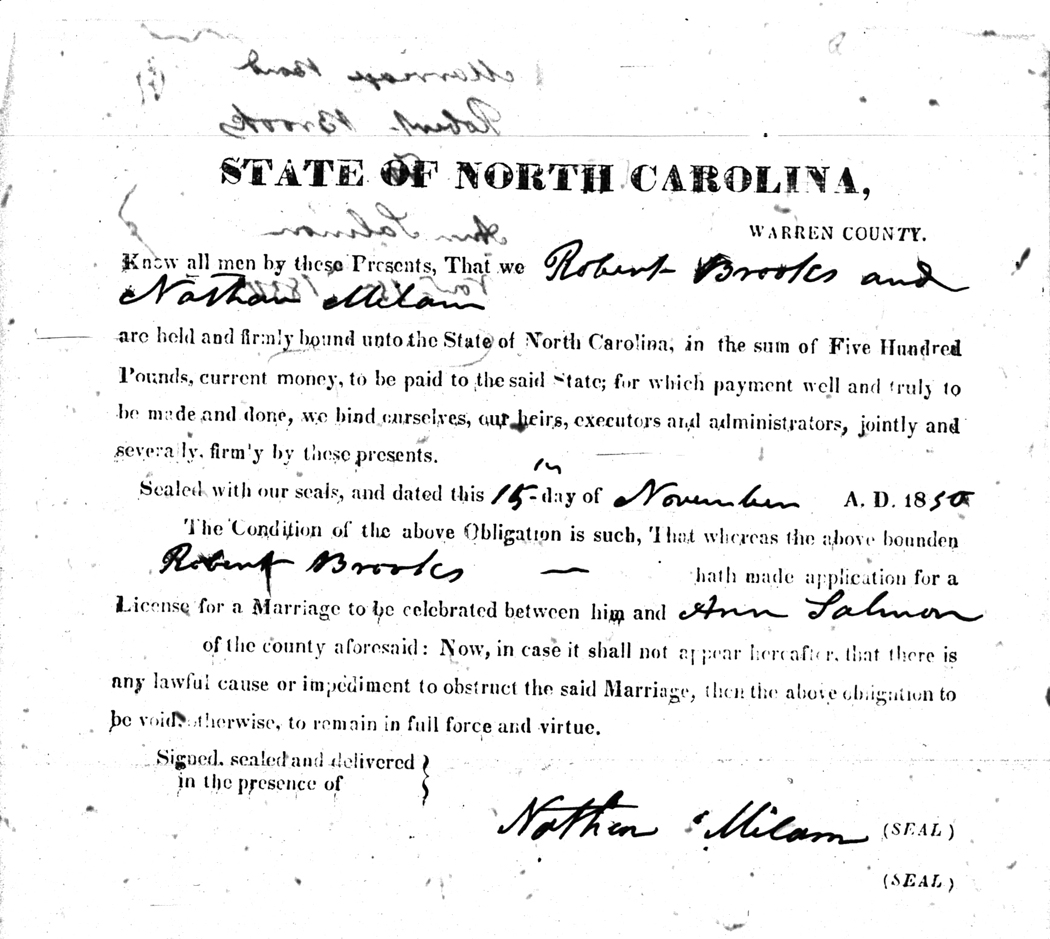 Marriage Bond
Robert Brooks
STATE OF NORTH CAROLINA,
Ann Salmon
WARREN COUNTY.
Know all men by these Presents, That we Robert Brooks and
Nathan Milam
are held and firmly bound unto the State of North Carolina, in the sum of Five Hundred
Pounds, current money, to be paid to the said State; for which payment well and truly to
be made and done, we bind ourselves, our heirs, executors and administrators, jointly and
severally, firmly by these presents.
Sealed with our seals, and dated this 15th day of November A. D. 1850
The Condition of the above Obligation is such, That whereas the above bounden
Robert Brooks — hath made application for a
License for a Marriage to be celebrated between him and Ann Salmon
of the county aforesaid: Now, in case it shall not appear hereafter, that there is
any lawful cause or impediment to obstruct the said Marriage, then the above obligation to
be void, otherwise, to remain in full force and virtue.
Signed, sealed and delivered }
in the presence of
Nathan Milam (SEAL)
(SEAL)